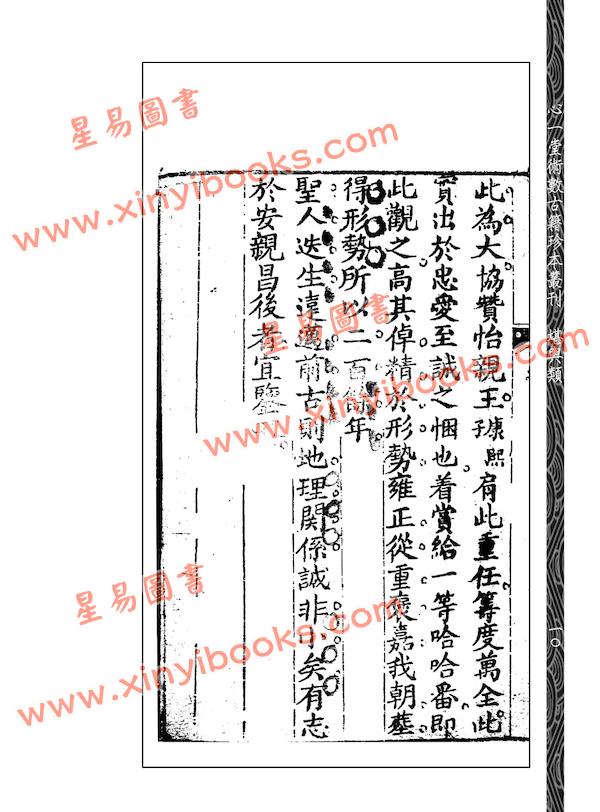 此為大協贊怡親王康熙子肩此重任籌度萬全此
實出於忠愛至誠之悃也着賞給一等哈哈番即
此觀之高其倬精於形勢雍正從重褒嘉我朝塋
得形勢所以二百餘年
聖人迭生遠邁前古則地理關係誠非小矣有志
於安親昌後者宜鑒
心一堂術數古籍珍本叢刊
類
一〇
星易圖書
www.xinyibooks.com
星易圖書
www.xinyibooks.com
星易圖書
www.xinyibooks.com